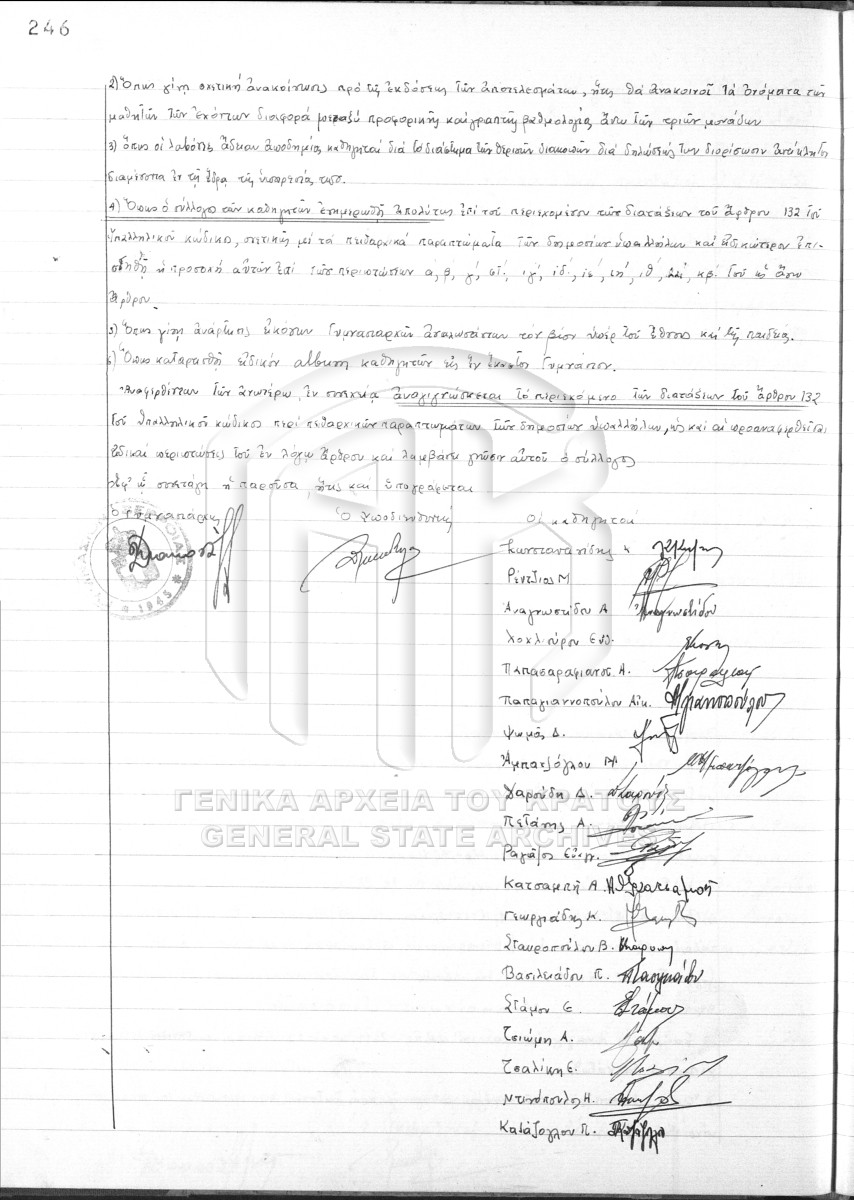 246
2) Ὅπως γίνῃ σχετικὴ ἀνακοίνωσις πρὸ τῆς ἐκδόσεως τῶν ἀποτελεσμάτων, ἥτις θὰ ἀνακοινοῖ τὰ ὀνόματα τῶν
μαθητῶν τῶν ἐχόντων διαφορὰ μεταξὺ προφορικῆς καὶ γραπτῆς βαθμολογίας ἄνω τῶν τριῶν μονάδων
3) ὅπως οἱ λαβόντες ἄδειαν ἀποδημίας καθηγηταὶ διὰ τὸ διάστημα τῶν θερινῶν διακοπῶν διὰ δηλώσεώς των διορίσωσιν ἀντίκλητον
διαμένοντα ἐν τῇ ἕδρᾳ τῆς ὑπηρεσίας των.
4) Ὅπως ὁ σύλλογος τῶν καθηγητῶν ἐνημερωθῇ ἀπολύτως ἐπὶ τοῦ περιεχομένου τῶν διατάξεων τοῦ ἄρθρου 132 τοῦ
ὑπαλληλικοῦ κώδικος, σχετικῆς μὲ τὰ πειθαρχικὰ παραπτώματα τῶν δημοσίων ὑπαλλήλων καὶ εἰδικώτερον ἐπι-
στηθῇ ἡ προσοχὴ αὐτῶν ἐπὶ τῶν περιπτώσεων α΄, β΄, γ΄, στ΄, ιγ΄, ιδ΄, ιε΄, ιη΄, ιθ΄, κβ΄ τοῦ ὡς ἄνω
ἄρθρου.
5) Ὅπως γίνῃ ἀνάρτησις εἰκόνων Γυμνασιαρχῶν ἀναλωσάντων τὸν βίον ὑπὲρ τοῦ ἔθνους καὶ τῆς παιδείας.
6) Ὅπως καταρτισθῇ εἰδικὸν album καθηγητῶν εἰς ἓν ἕκαστον Γυμνάσιον.
Ἀναφερθέντων τῶν ἀνωτέρω, ἐν συνεχείᾳ ἀναγιγνώσκεται τὸ περιεχόμενο τῶν διατάξεων τοῦ ἄρθρου 132
τοῦ ὑπαλληλικοῦ κώδικος περὶ πειθαρχικῶν παραπτωμάτων τῶν δημοσίων ὑπαλλήλων, ὡς καὶ αἱ προαναφερθεῖσαι
εἰδικαὶ περιπτώσεις τοῦ ἐν λόγῳ ἄρθρου καὶ λαμβάνει γνῶσιν αὐτοῦ ὁ σύλλογος
Ἐφ' ᾧ συνετάγη ἡ παροῦσα, ἥτις καὶ ὑπογράφεται
ὁ Γυμνασιάρχης Ὁ Ὑποδιευθυντὴς Οἱ καθηγηταί
1945
Κωνσταντινίδης
Ρέντζιος Μ
Ἀναγνωστίδου Α Ἀναγνωστίδου
Χοχλιούρου Εὐ.
Παπασαραφιανος Α.
Παπαγιαννοπούλου Αἰκ.
Ψωμᾶς Δ.
Ἀμπατζόγλου
Χαρούδη Δ.
Πετάνης Α.
Ραγάζος Εὐάγ.
Κατσαμπῆ Α.
Γεωργιάδης Κ.
Σταυροπούλου Β.
Βασιλειάδου Π.
Στάμου Ε. Στάμου
Τσιώμη Α.
Τσαλίκη Ε.
Ντινόπουλος Η.
Κατάζογλου Π.
ΓΕΝΙΚΑ ΑΡΧΕΙΑ ΤΟΥ ΚΡΑΤΟΥΣ
GENERAL STATE ARCHIVES